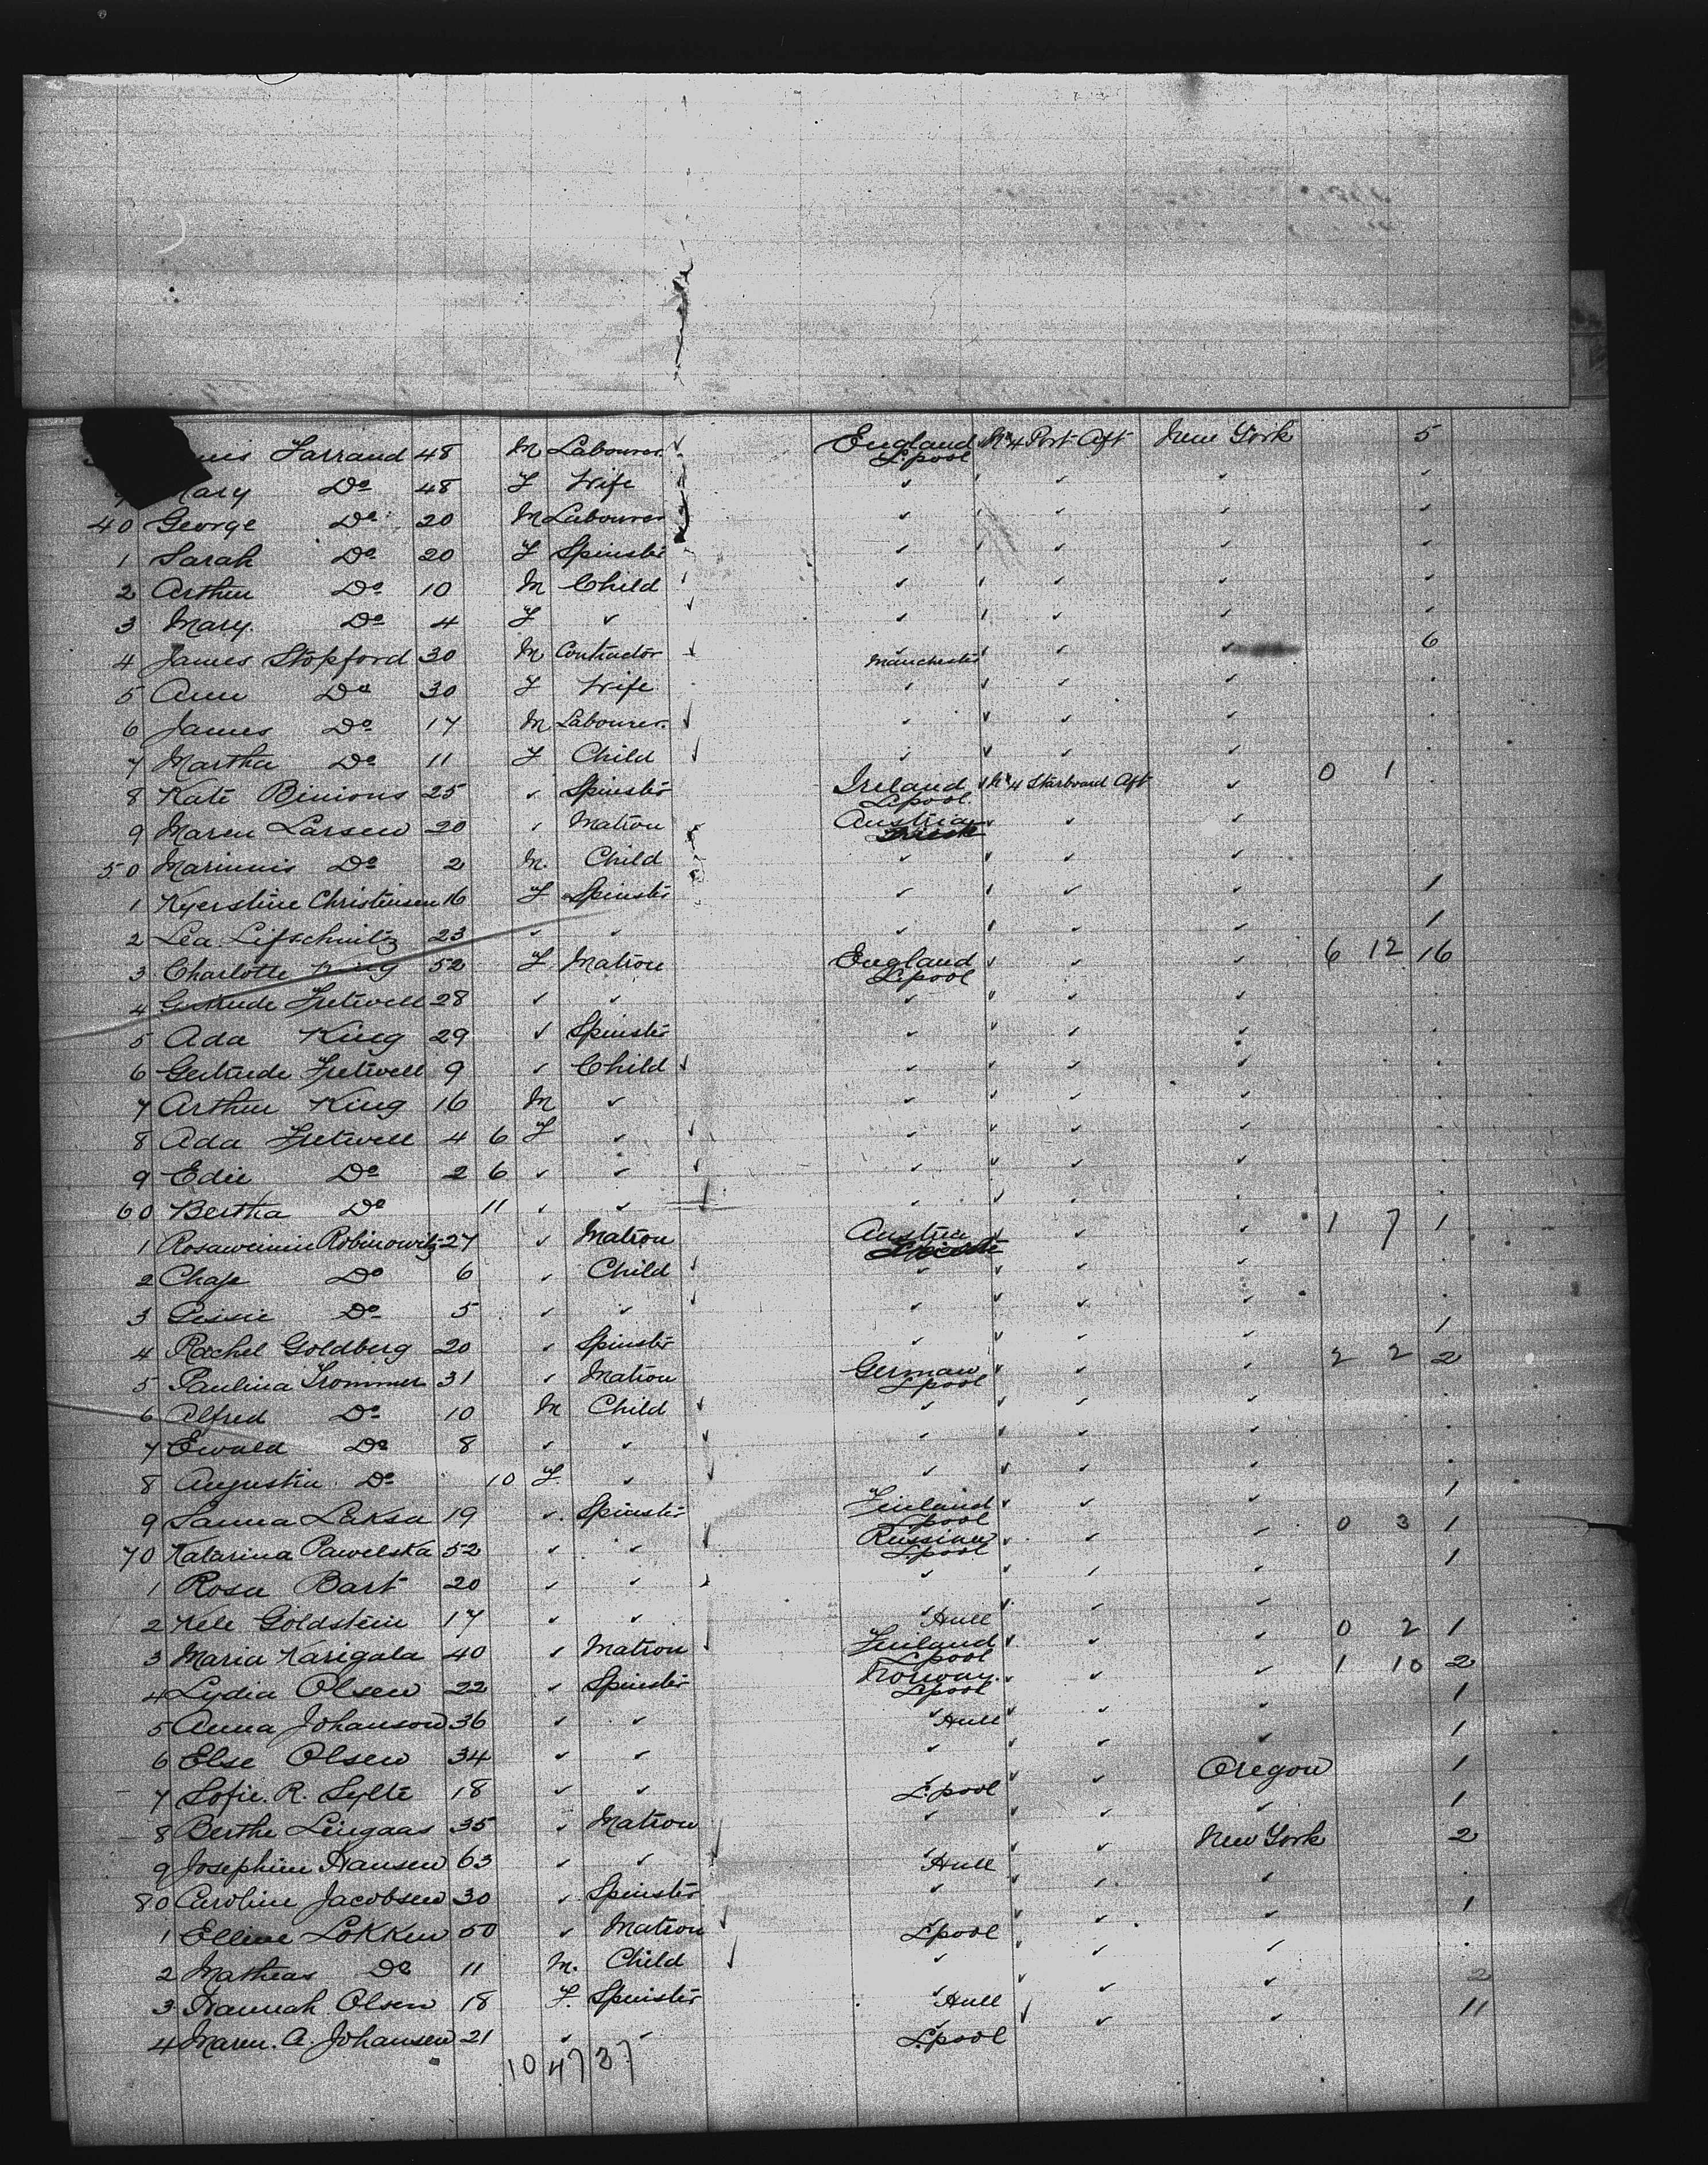 Farrand 48 M Labourer England L.pool No 4 Port Aft New York 5
Mary Do 48 F Wife ✓ ✓ ✓
40 George Do 20 M Labourer ✓ ✓ ✓
1 Sarah Do 20 F Spinster ✓ ✓ ✓
2 Arthur Do 10 M Child ✓ ✓ ✓
3 Mary Do 4 F ✓ ✓ ✓ ✓
4 James Stopford 30 M Contractor Manchester ✓ ✓ 6
5 Ann Do 30 F Wife ✓ ✓ ✓
6 James Do 17 M Labourer ✓ ✓ ✓
7 Martha Do 11 F Child ✓ ✓ ✓
8 Kate Binions 25 ✓ Spinster Ireland L.pool No 4 Starboard Aft ✓ 0 1
9 Maren Larsen 20 ✓ Matron Austria ✓ ✓
50 Marinnis Do 2 M. Child ✓ ✓ ✓
1 Kyerstine Christensen 16 F Spinster ✓ ✓ ✓ 1
2 Lea Lifschnitz 23 ✓ ✓ ✓ ✓ ✓ 1
3 Charlotte King 52 F. Matron England L.pool ✓ ✓ 6 12 16
4 Gertrude Fretwell 28 ✓ ✓ ✓ ✓ ✓
5 Ada King 29 ✓ Spinster ✓ ✓ ✓
6 Gertrude Fretwell 9 ✓ Child ✓ ✓ ✓
7 Arthur King 16 M ✓ ✓ ✓ ✓
8 Ada Fretwell 4 6 F ✓ ✓ ✓ ✓
9 Edie Do 2 6 ✓ ✓ ✓ ✓ ✓
60 Bertha Do 11 ✓ ✓ ✓ ✓ ✓
1 Robinowitz 27 ✓ Matron Austria ✓ ✓ 1 7 1
2 Chaje Do 6 ✓ Child ✓ ✓ ✓
3 Pessie Do 5 ✓ ✓ ✓ ✓ ✓
4 Rachel Goldberg 20 ✓ Spinster ✓ ✓ ✓ 1
5 Paulina Trommer 31 ✓ Matron German L.pool ✓ ✓ 2 2 2
6 Alfred Do 10 M Child ✓ ✓ ✓
7 Ewald Do 8 ✓ ✓ ✓ ✓ ✓
8 Augustin Do 10 F. ✓ ✓ ✓ ✓
9 Sanna Laksa 19 ✓ Spinster Finland L.pool ✓ ✓ 1
70 Katarina Pawelska 52 ✓ ✓ Russian L.pool ✓ ✓ 0 3 1
1 Rosa Bart 20 ✓ ✓ ✓ ✓ ✓ 1
2 Kele Goldstein 17 ✓ ✓ Hull ✓ ✓
3 Maria Karigala 40 ✓ Matron Finland L.pool ✓ ✓ 0 2 1
4 Lydia Olsen 22 ✓ Spinster Norway L.pool ✓ ✓ 1 10 2
5 Anna Johanson 36 ✓ ✓ Hull ✓ ✓ 1
6 Else Olsen 34 ✓ ✓ ✓ ✓ ✓ 1
7 Sofie. R. Sylte 18 ✓ ✓ L.pool ✓ Oregon 1
8 Berthe Lingaas 35 ✓ Matron ✓ ✓ ✓ 1
9 Josephine Hansen 63 ✓ ✓ Hull ✓ New York 2
80 Caroline Jacobsen 30 ✓ Spinster ✓ ✓ ✓
1 Elline Lokken 50 ✓ Matron L.pool ✓ ✓ 1
2 Matheas Do 11 M. Child ✓ ✓ ✓
3 Hannah Olsen 18 F. Spinster Hull ✓ ✓ 2
4 Maren. A. Johansen 21 ✓ ✓ L.pool ✓ ✓ 11
10 47 37